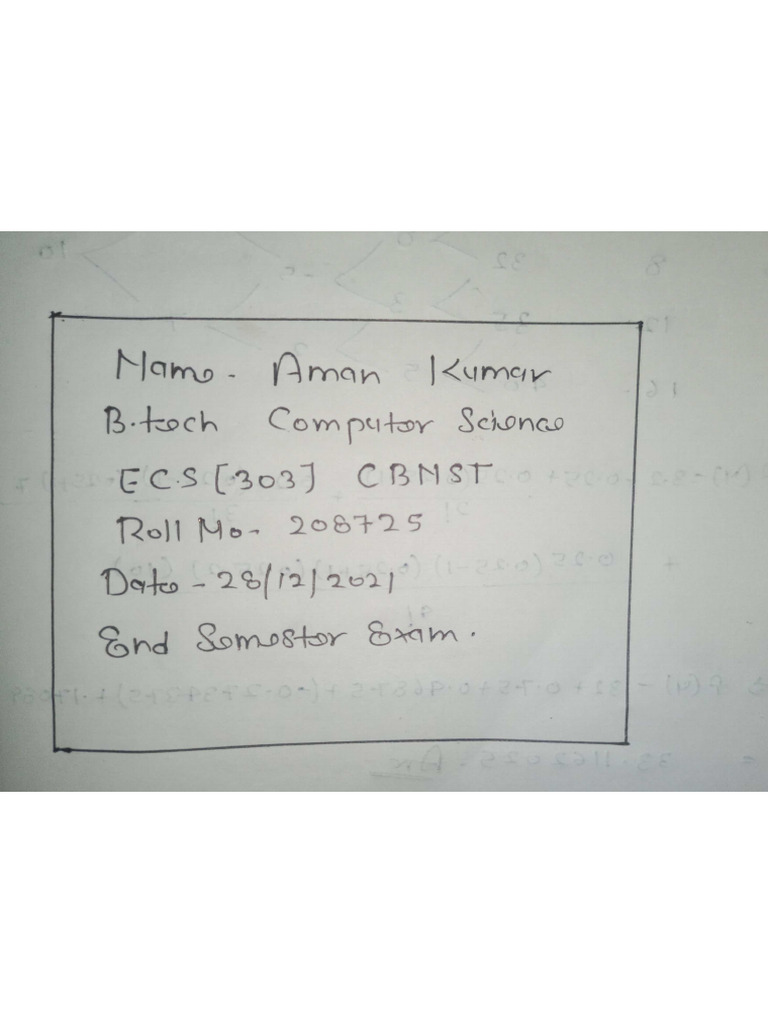 Name - Aman Kumar
B.tech Computer Science
ECS [303] CBNST
Roll No - 208725
Date - 28/12/2021
End Semester Exam.